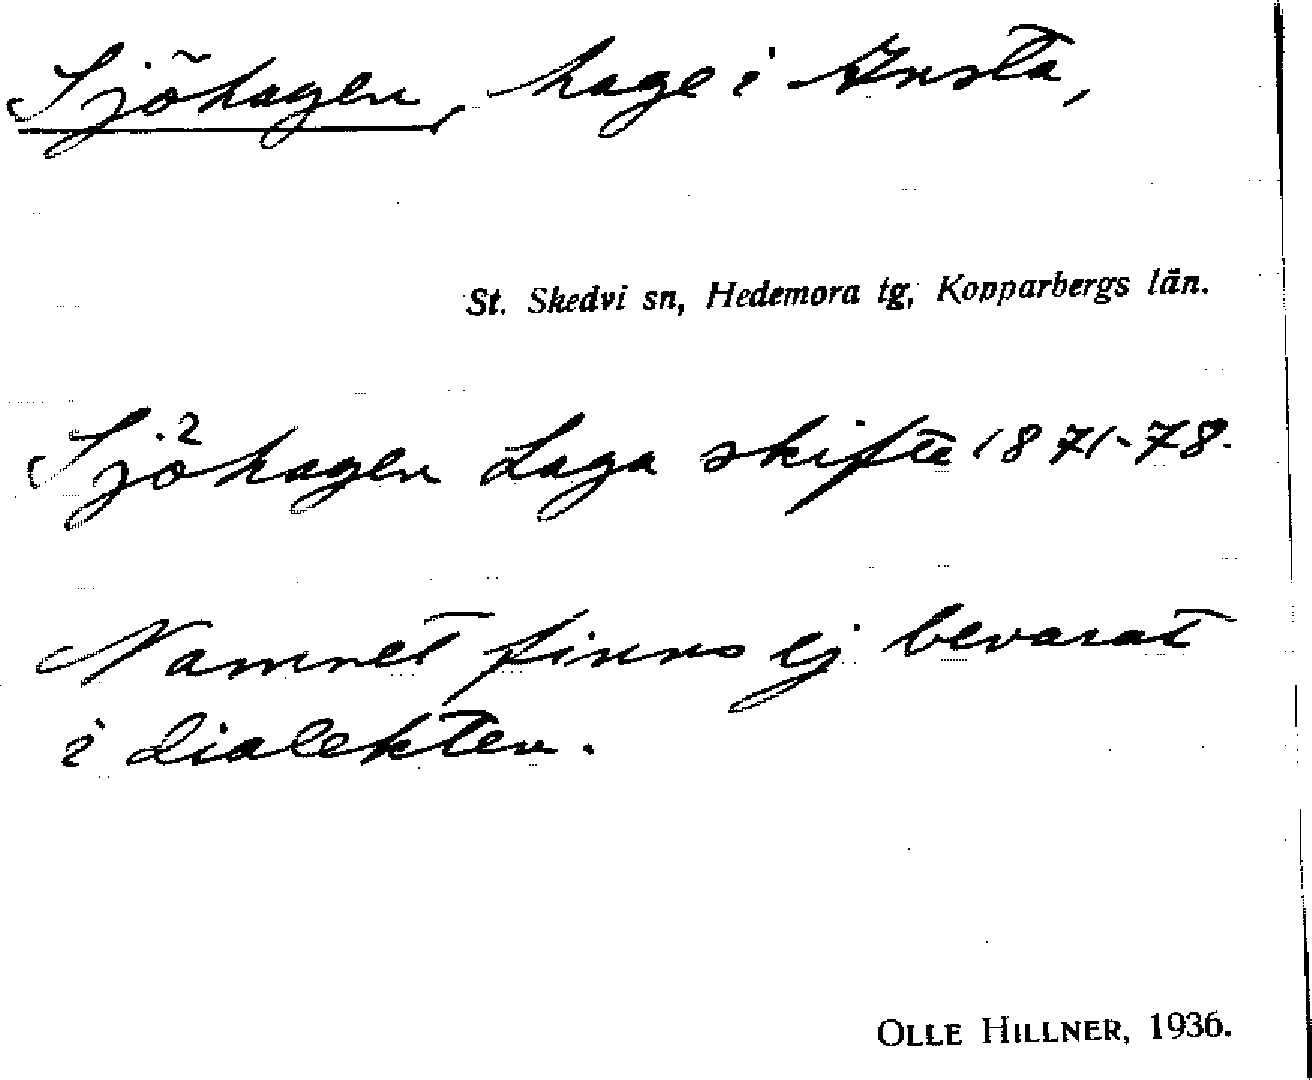 Sjöhagen, hage i Knsta,
St. Skedvi sn, Hedemora tg, Kopparbergs län.
Sjöhagen Laga skifte 1871-78.
Namnet finns ej bevarat
i dialekten.
OLLE HILLNER, 1936.